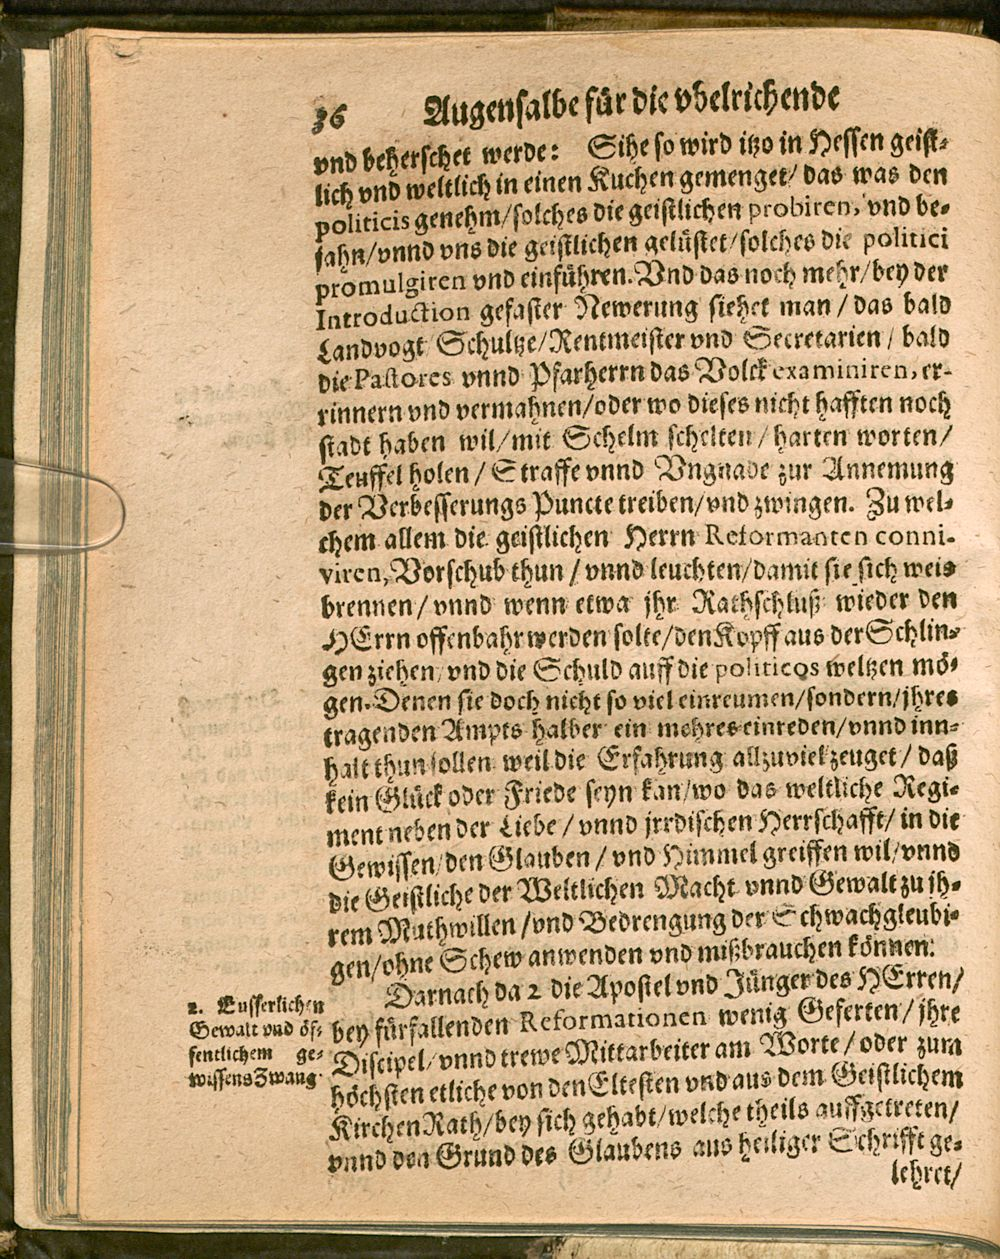 36 Augensalbe für die vbelrichende
vnd beherschet werde: Sihe so wird itzo in Hessen geist-
lich vnd weltlich in einen Kuchen gemenget/ das was den
politicis genehm/ solches die geistlichen probiren, vnd be-
jahn/ vnnd vns die geistlichen gelüstet/ solches die politici
promulgiren vnd einführen. Vnd das noch mehr/ bey der
Introduction gefaster Newerung siehet man/ das bald
Landvogt/ Schultze/ Rentmeister vnd Secretarien/ bald
die Pastores vnnd Pfarherrn das Volck examiniren, er-
rinnern vnd vermahnen/ oder wo dieses nicht hafften noch
stadt haben wil/ mit Schelm schelten/ harten worten/
Teuffel holen/ Straffe vnnd Vngnade zur Annemung
der Verbesserungs Puncte treiben/ vnd zwingen. Zu wel-
chem allem die geistlichen Herrn Reformanten conni-
viren, Vorschub thun/ vnnd leuchten/ damit sie sich weis
brennen/ vnnd wenn etwa jhr Rathschluß wieder den
HErrn offenbahr werden solte/ den Kopff aus der Schlin-
gen ziehen/ vnd die Schuld auff die politicos weltzen mö-
gen. Denen sie doch nicht so viel einreumen/ sondern/ jhres
tragenden Ampts halber ein mehres einreden/ vnnd inn-
halt thun sollen weil die Erfahrung allzuviel zeuget/ daß
kein Glück oder Friede seyn kan/ wo das weltliche Regi-
ment neben der Liebe/ vnnd jrrdischen Herrschafft/ in die
Gewissen/ den Glauben/ vnd Himmel greiffen wil/ vnnd
die Geistliche der Weltlichen Macht vnnd Gewalt zu jh-
rem Muthwillen/ vnd Bedrengung der Schwachgleubi-
gen/ ohne Schew anwenden vnd mißbrauchen können.
Darnach da 2 die Apostel vnd Jünger des HErren/
bey fürfallenden Reformationen wenig Geferten/ jhre
Discipel/ vnnd trewe Mittarbeiter am Worte/ oder zum
höchsten etliche von den Eltesten vnd aus dem Geistlichem
Kirchen Rath/ bey sich gehabt/ welche theils auffgetreten/
vnnd den Grund des Glaubens aus heiliger Schrifft ge-
lehret/
2. Eusserlichen
Gewalt vnd öf-
fentlichem ge-
wissens Zwang.